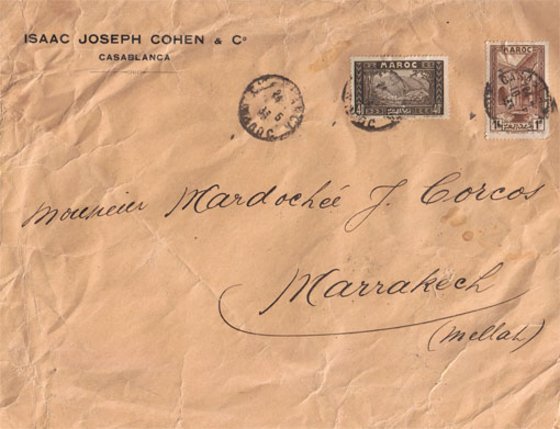 ISAAC JOSEPH COHEN & Cº
CASABLANCA
MAROC
MAROC
1F
Monsieur Mardochée J. Corcos
Marrakech
(Mellah)